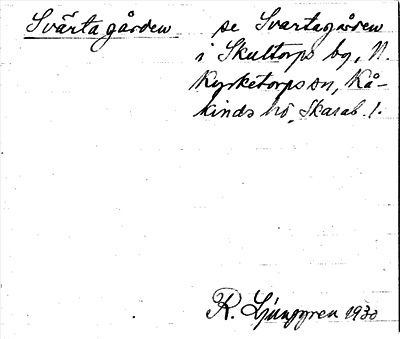 Svärta gården se Svartagården
i Skultorps by, N.
Kyrketorps sn, Kå-
kinds hd, Skarab. l.
R. Ljunggren 1930